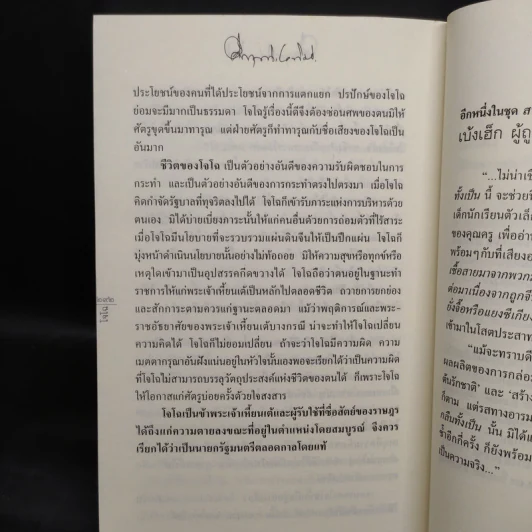 ประโยชน์ของคนที่ได้ประโยชน์จากการแตกแยก ปรปักษ์ของโจโฉ
ย่อมจะมีมากเป็นธรรมดา โจโฉรู้เรื่องนี้ดีจึงต้องซ่อนศพของตนมิให้
ศัตรูขุดขึ้นมาทารุณ แต่ฝ่ายศัตรูก็ทำทารุณกับชื่อเสียงของโจโฉเป็น
อันมาก
ชีวิตของโจโฉ เป็นตัวอย่างอันดีของความรับผิดชอบในการ
กระทำ และเป็นตัวอย่างอันดีของการกระทำตรงไปตรงมา เมื่อโจโฉ
คิดกำจัดรัฐบาลที่ทุจริตลงไปได้ โจโฉก็เข้ารับภาระแห่งการบริหารด้วย
ตนเอง มิได้บ่ายเบี่ยงภาระนั้นให้แก่คนอื่นด้วยการถ่อมตัวที่ไร้สาระ
เมื่อโจโฉมีนโยบายที่จะรวบรวมแผ่นดินจีนให้เป็นปึกแผ่น โจโฉก็
มุ่งหน้าดำเนินนโยบายนั้นอย่างไม่ท้อถอย มิให้ความสุขหรือทุกข์หรือ
เหตุใดเข้ามาเป็นอุปสรรคกีดขวางได้ โจโฉถือว่าตนอยู่ในฐานะทำ
ราชการให้แก่พระเจ้าเหี้ยนเต้เป็นหลักไปตลอดชีวิต ถวายการยกย่อง
และสักการะตามควรแก่ฐานะตลอดมา แม้ว่าพฤติการณ์และพระ-
ราชอัธยาศัยของพระเจ้าเหี้ยนเต้บางกรณี น่าจะทำให้โจโฉเปลี่ยน
ความคิดได้ โจโฉก็ไม่ยอมเปลี่ยน ถ้าจะว่าโจโฉมีความผิด ความ
เมตตากรุณาอันฝังแน่นอยู่ในหัวใจนั้นเองพอจะเรียกได้ว่าเป็นความผิด
ที่โจโฉไม่สามารถบรรลุวัตถุประสงค์แห่งชีวิตของตนได้ ก็เพราะโจโฉ
ให้โอกาสแก่ศัตรูบ่อยครั้งด้วยใจสงสาร
โจโฉเป็นข้าพระเจ้าเหี้ยนเต้และผู้รับใช้ที่ซื่อสัตย์ของราษฎร
ได้ถึงแก่ความตายลงขณะที่อยู่ในตำแหน่งโดยสมบูรณ์ จึงควร
เรียกได้ว่าเป็นนายกรัฐมนตรีตลอดกาลโดยแท้
โจโฉ
อีกหนึ่งในชุด ส
เบ้งเฮ็ก ผู้ถู
“...ไม่น่าเชื
ทั้งเป็น นี้ จะช่วย
เด็กนักเรียนตัวเล็
ของคุณครู เพื่ออ่า
พร้อมๆกับที่เสียงอ
เชื้อสายมาจากพวก
ต่อมาเนื่องจากถูกจี
ยั่งจื้อหรือแยงซีเกียง
เข้ามาในโสตประสาท
“แม้จะทราบดี
ผลผลิตของการกล่อ
ต้นรักชาติ’ และ ‘สร้าง
ก็ตาม แต่รสทางอารม
กลืนทั้งเป็น นั้น มิได้แ
ซ้ำอีกกี่ครั้ง ก็ยังพร้อม
เป็นความจริง...”